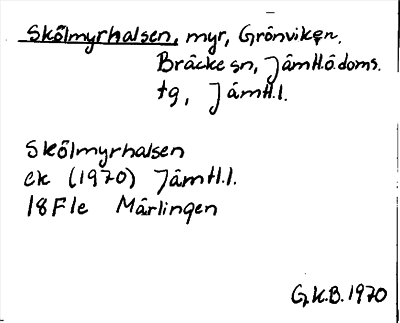 Skölmyrhalsen, myr, Grönviken,
Bräcke sn, Jämtl.ö.doms.
tg, Jämtl.l.
Skölmyrhalsen
ek (1970) Jämtl.l.
18F1e Märlingen
G.K.B. 1970